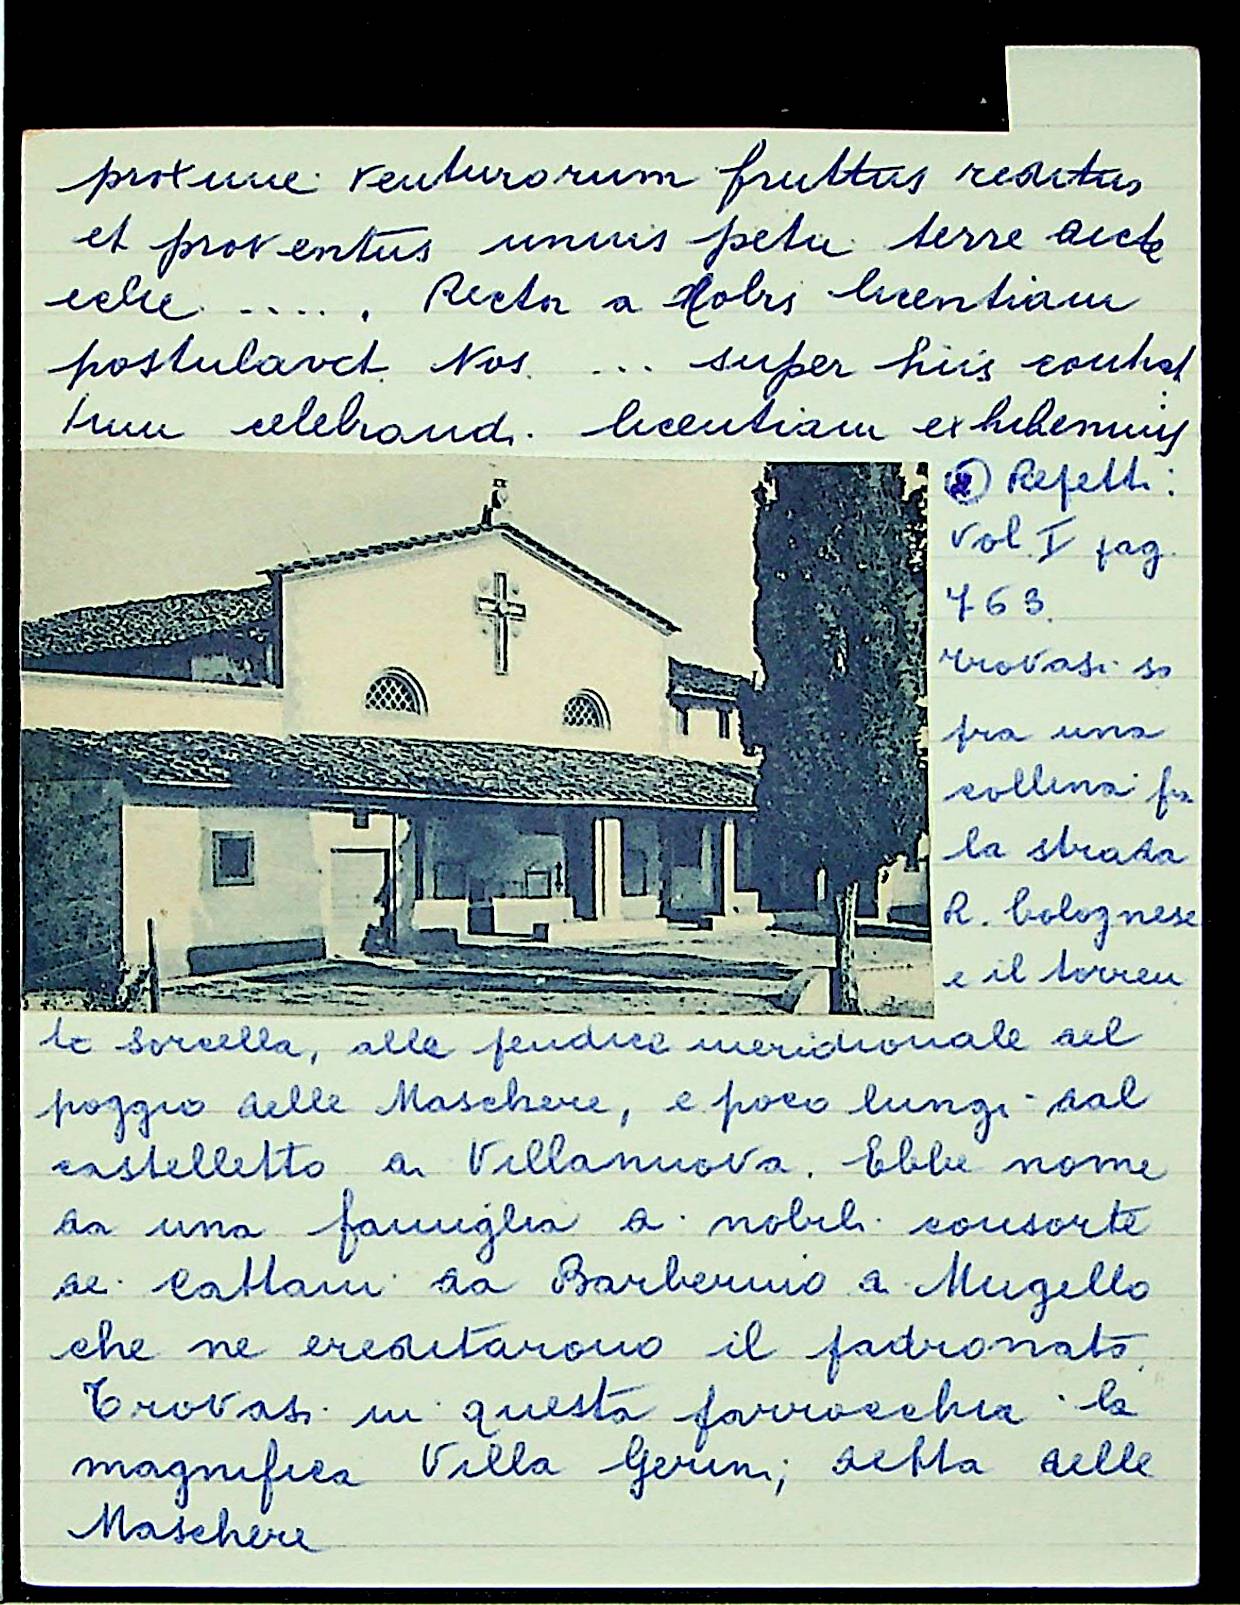 proxime venturorum fruttus reditus
et proventus unius petii terre dicte
eclie ..... Rector a Nobis licentiam
postulavit. Nos ... super hiis contrat
tum celebrandi licentiam exhibemus
② Repetti:
vol. I pag.
763.
trovasi so
pra una
collina fra
la strada
R. bolognese
e il torren
te Sorcella, alle pendice meridionale del
poggio delle Maschere, e poco lungi dal
castelletto di Villanuova. Ebbe nome
da una famiglia di nobili consorte
dei Cattani da Barberino di Mugello
che ne ereditarono il padronato.
Trovasi in questa parrocchia la
magnifica Villa Gerini, detta delle
Maschere